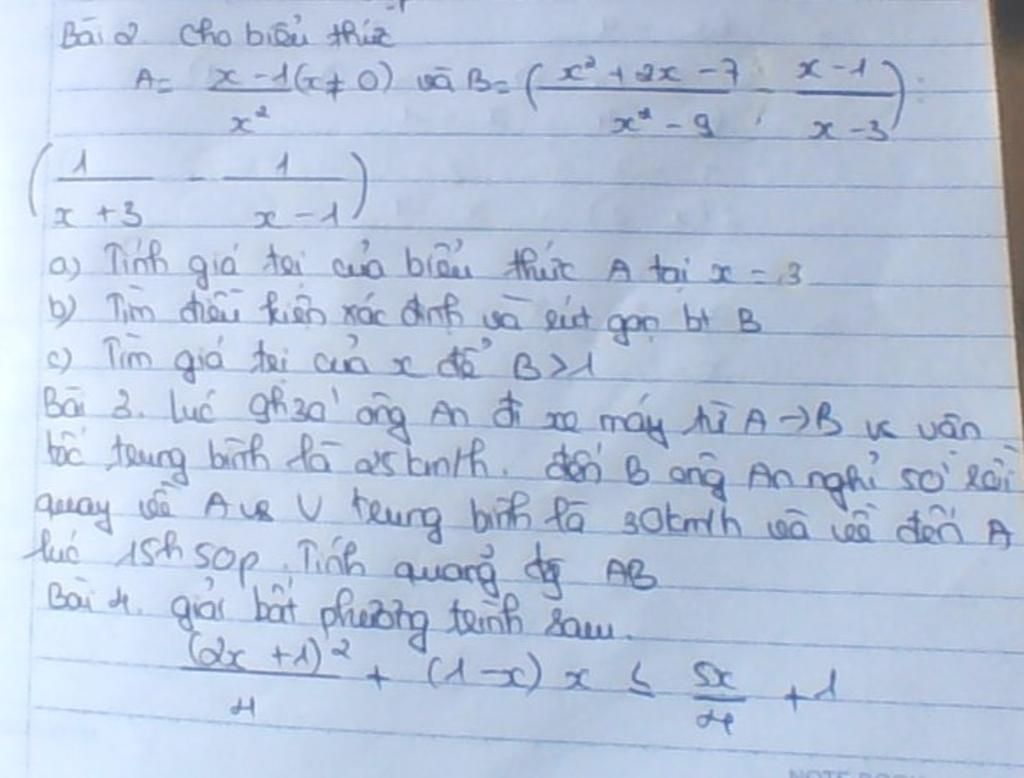 Bài 2 cho biểu thức
A = \frac{x - 1}{x^2} (x ≠ 0) và B = ( \frac{x^2 + 2x - 7}{x^2 - 9} - \frac{x - 1}{x - 3} ) :
( \frac{1}{x + 3} - \frac{1}{x - 1} )
a) Tính giá trị của biểu thức A tại x = 3
b) Tìm điều kiện xác định và rút gọn bt B
c) Tìm giá trị của x để B > 1
Bài 3. Lúc 9h30' ông An đi xe máy từ A → B vs vận
tốc trung bình là 25km/h. đến B ông An nghỉ 50' rồi
quay về A vs V trung bình là 30km/h và về đến A
lúc 15h50p. Tính quảng đg AB
Bài 4. giải bất phương trình sau.
\frac{(2x + 1)^2}{4} + (1 - x) x ≤ \frac{5x}{4} + 1